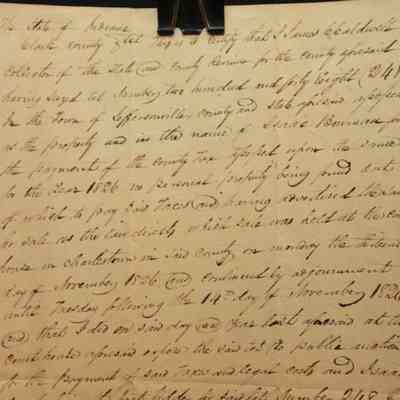 The State of Indiana
Clark county Sct This is to certify that I James Caldwell
Collector of the State and county Revenue for the county aforesaid
having levyed lot Number two hundred and forty eight (248
In the Town of Jeffersonville county and state aforesaid
as the property and in the name of Isaac Bowman
the payment of the county tax upon the same
for the year 1826 no personal property being found
of which to pay said Taxes and having advertised the
for sale as the law directs which sale was held at the cou
house in Charlestown in said county on monday the
day of November 1826 and continued by adjournment
until Tuesday following the 14th day of November 1826
and that I did on said day and year last aforesaid at the
court house aforesaid expose the said lot to public auction
for the payment of said Taxes and cost and Isaac
bidder Number 248